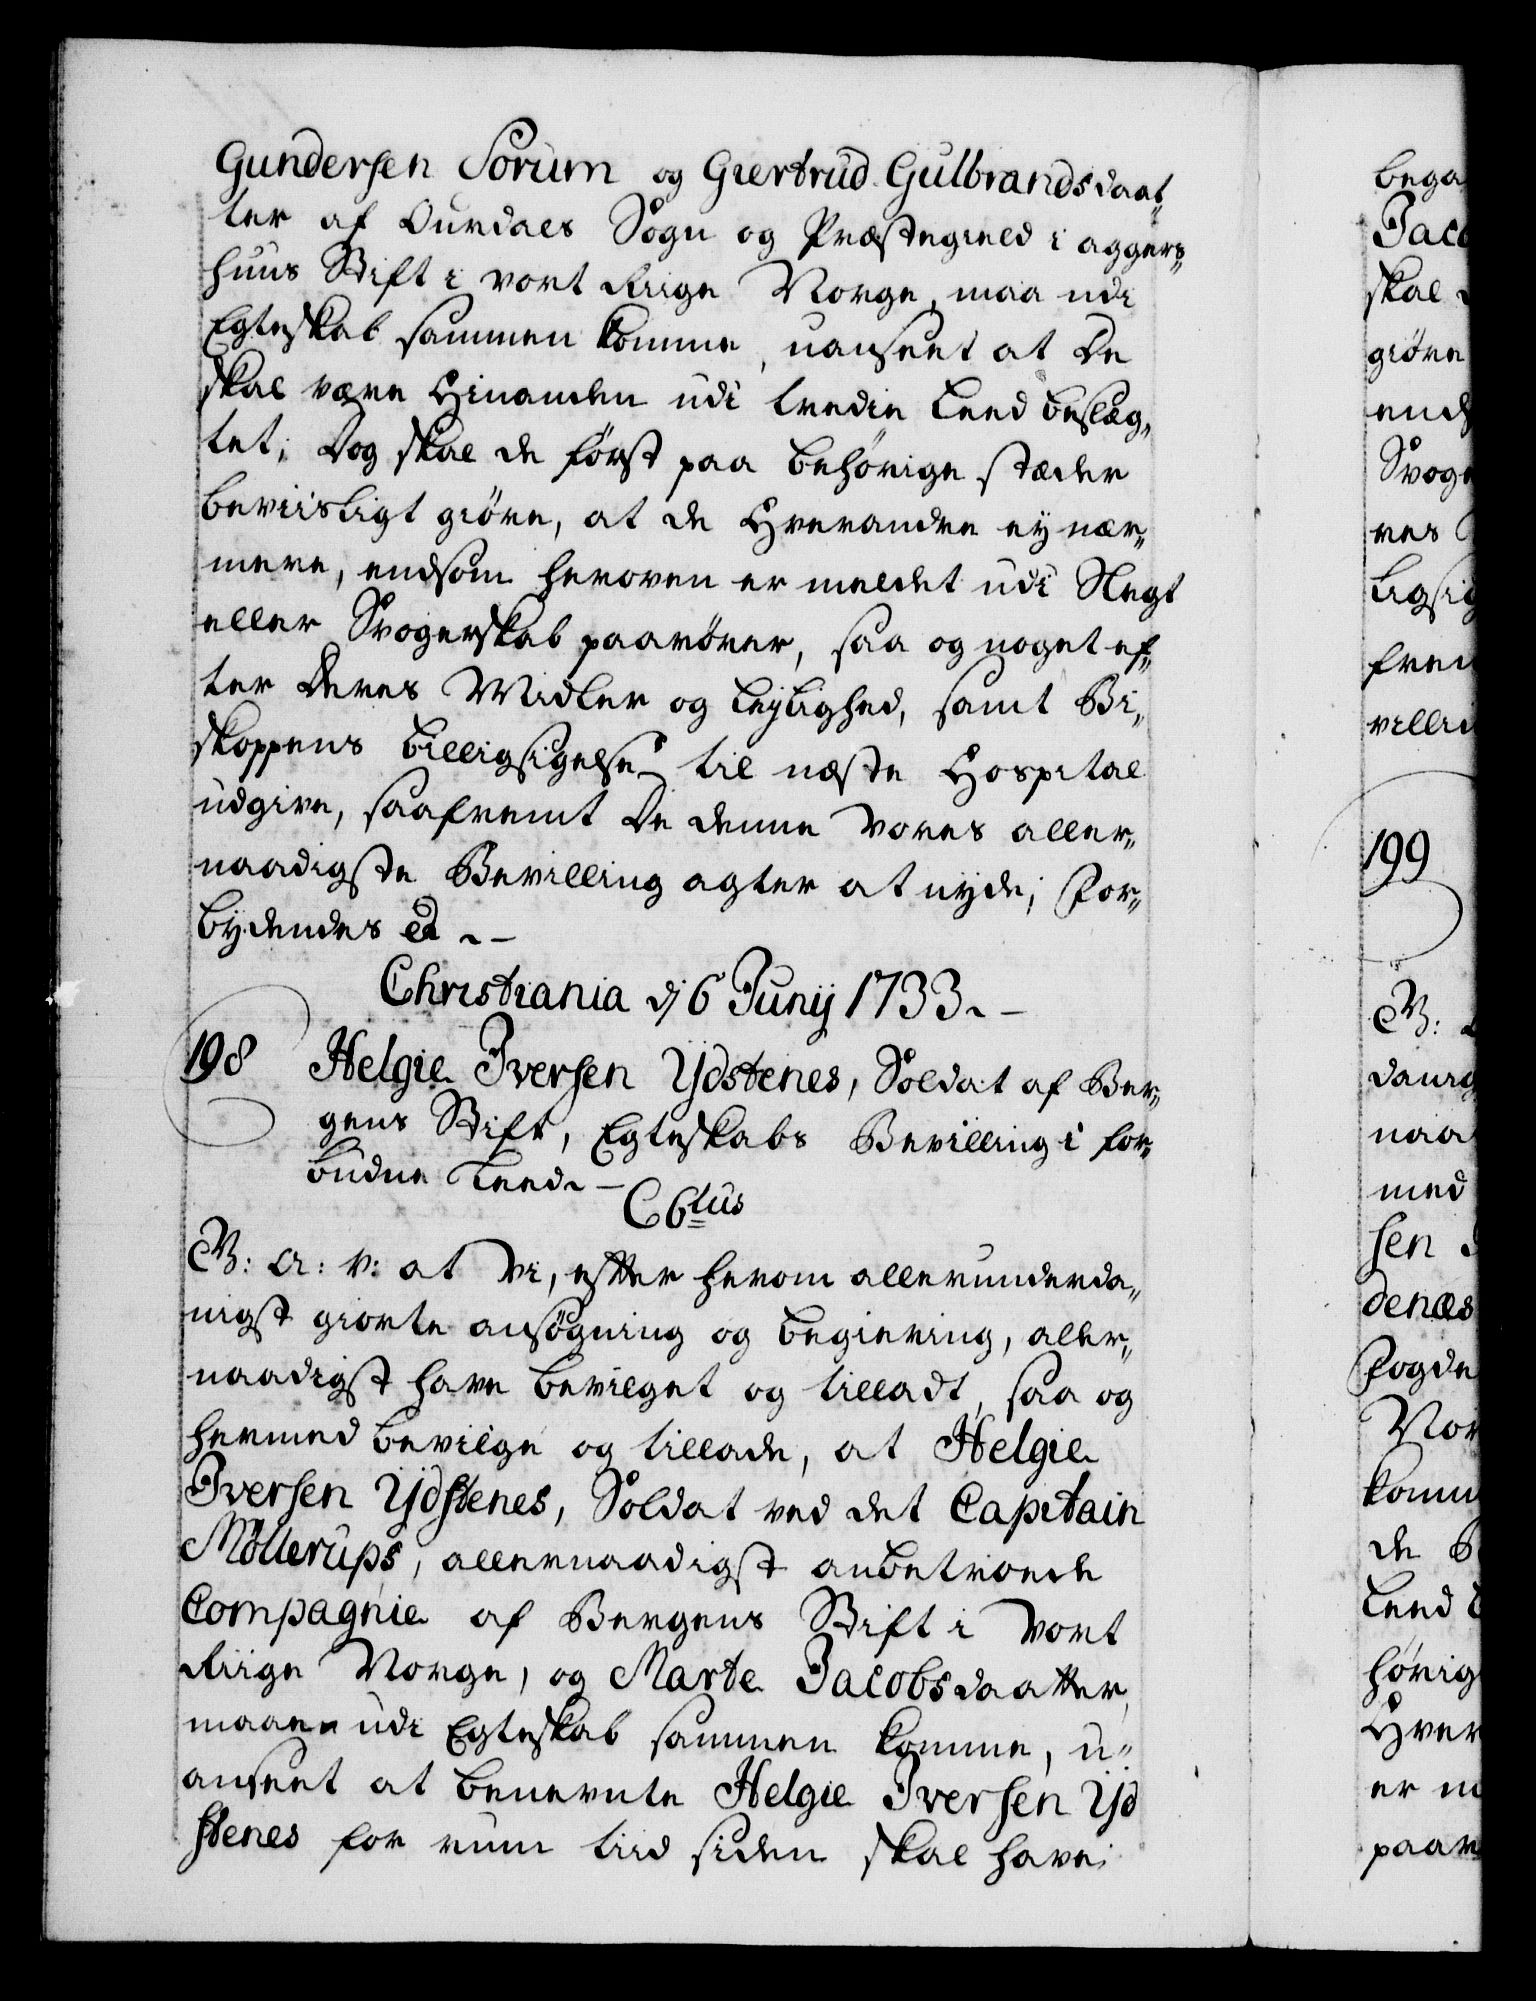 Gundersen Sorum og Giertrud Gulbrandsdaat„
ter af Ourdals Sogn og Præstegield i agger„
huus Stift i vort Riige Norge, maa udi
Egteskab sammen komme, uanseet at De
skal være Hinanden udi tredie Leed beslæg„
tet; Dog skal de først paa behørige stæder
beviisligt giøre, at de Hverandre ey nær„
mere, endsom heroven er meldet udi Slegt
eller Svogerskab paarører, saa og noget ef„
ter Deres Midler og Leylighed, samt Bi„
skoppens billigsigelse til næste Hospital
udgive, saafremt De denne Vores aller„
naadigste Bevilling agter at nyde; For„
bydendes &.
Christiania dj 6 Junij 1733.
198 Helgie Iversen Ydstenes, Soldat af Ber„
gens Stift, Egteskabs Bevilling i for„
budne Leed.
C 6tus
G: A: V: at Vi, efter herom allerunderda„
nigst giorte ansøgning og begiering, aller„
naadigst have bevilget og tilladt, saa og
hermed bevilge og tillade, at Helgie
Iversen Ydstenes, Soldat ved det Capitain
Møllerups, allernaadigst anbetroede
Compagnie af Bergens Stift i Vort
Riige Norge, og Marte Jacobsdaatter,
maae udi Egteskab sammen komme, u„
anseet at benevnte Helgie Iversen Yd
stenes for rum tiid siden skal have
bega
Jaco
skal
giøre
ends
Svoge
res
ligsig
frem
villin
199
G:
danig
naa
med
sen
denæs
Fogde
Nor
komm
de
Leed
hørig
Hver
er m
paar